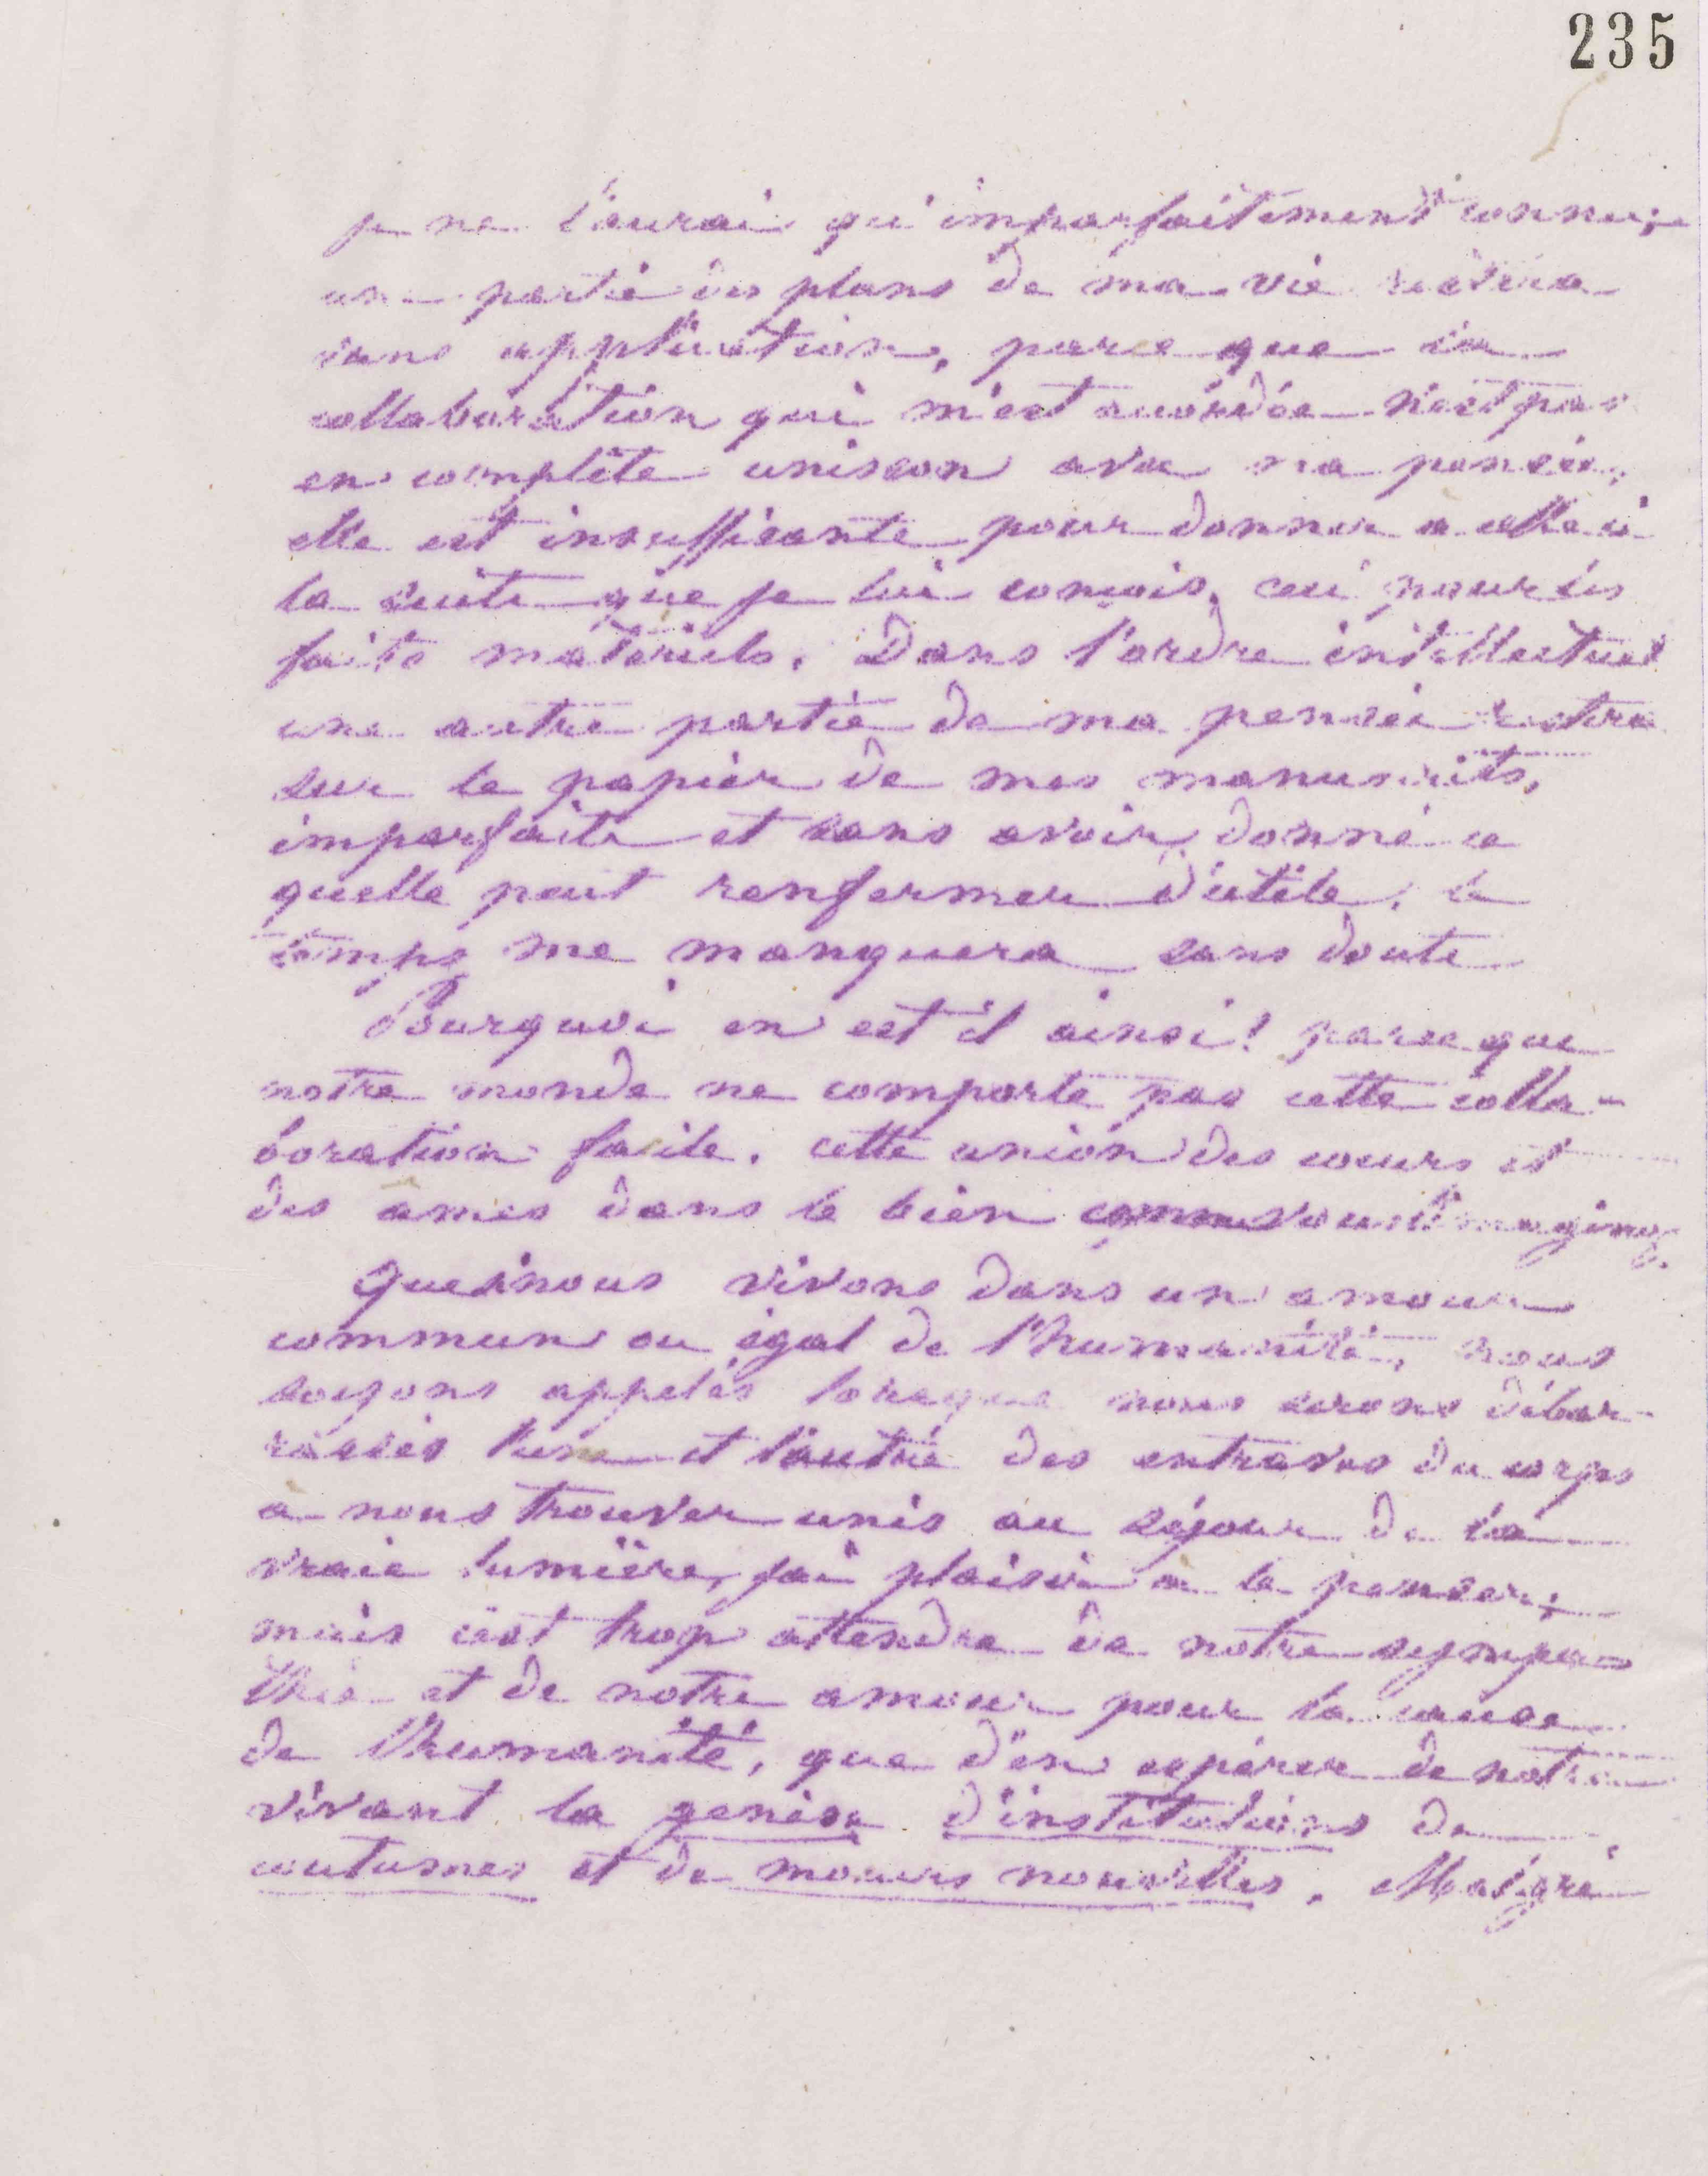 235
je ne l'aurai qu'imparfaitement connue,
une partie des plans de ma vie restera
sans application, parce que la
collaboration qui m'est accordée n'est pas
en complète unisson avec ma pensée,
elle est insuffisante pour donner a celle ci
la suite que je lui conçois, ceci pour les
faits matériels. Dans l'ordre intellectuel
une autre partie de ma pensée restera
sur le papier de mes manuscrits,
imparfaite et sans avoir donné ce
quelle peut renfermer d'utile, le
temps me manquera sans doute
Pourquoi en est il ainsi! parce que
notre monde ne comporte pas cette colla-
boration facile, cette union des coeurs et
des ames dans le bien comme vous l'imaginez.
Que nous vivons dans un amour
commun ou égal de l'humanité, nous
soyons appelés lorsque nous serons débar-
rassés l'un et l'autre des entraves du corps
a nous trouver unis au séjour de la
vraie lumière, j'ai plaisir a le penser;
mais c'est trop attendre de notre sympa-
thie et de notre amour pour la cause
de l'humanité, que d'en espérer de notre
vivant la genèse d'institutions de
coutumes et de moeurs nouvelles. Malgré